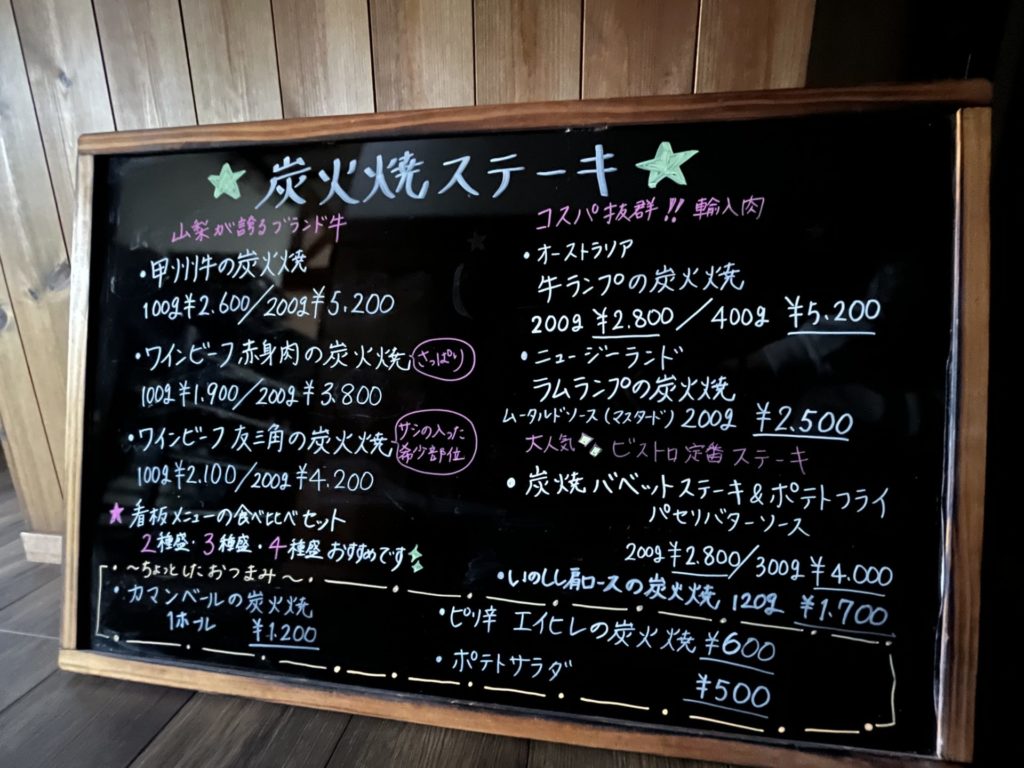 炭火焼ステーキ
山梨が誇るブランド牛
・甲州牛の炭火焼
100g¥2.600/200g¥5.200
・ワインビーフ赤身肉の炭火焼 さっぱり
100g¥1.900/200g¥3.800
・ワインビーフ友三角の炭火焼 サシの入った
希少部位
100g¥2.100/200g¥4.200
★看板メニューの食べ比べセット
2種盛・3種盛・4種盛おすすめです
コスパ抜群!! 輸入肉
・オーストラリア
牛ランプの炭火焼
200g ¥2.800/400g ¥5.200
・ニュージーランド
ラムランプの炭火焼
ムータルドソース(マスタード) 200g ¥2.500
大人気 ビストロ定番ステーキ
・炭焼バベットステーキ&ポテトフライ
パセリバターソース
200g¥2.800/300g¥4.000
・いのしし肩ロースの炭火焼 120g ¥1.700
〜ちょっとしたおつまみ〜
・カマンベールの炭火焼
1ホール ¥1.200
・ピリ辛 エイヒレの炭火焼 ¥600
・ポテトサラダ ¥500